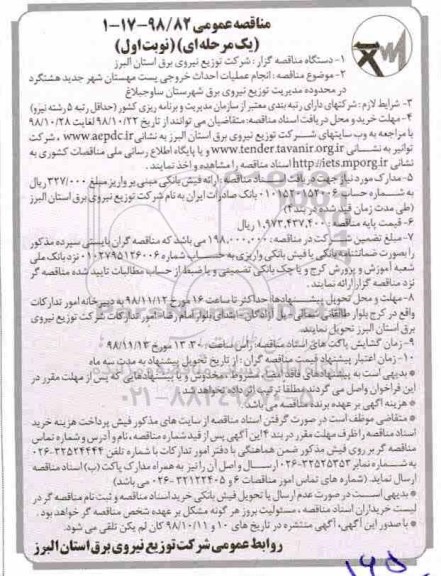 مناقصه عمومی ۹۸/۸۲-۱۷-۱
(یک مرحله ای) (نوبت اول)
۱- دستگاه مناقصه گزار: شرکت توزیع نیروی برق استان البرز
۲- موضوع مناقصه: انجام عملیات احداث خروجی پست مهستان شهر جدید هشتگرد
در محدوده مدیریت توزیع نیروی برق شهرستان ساوجبلاغ
۳- شرایط لازم: شرکتهای دارای رتبه بندی معتبر از سازمان مدیریت و برنامه ریزی کشور (حداقل رتبه ۵ رشته نیرو)
۴- مهلت خرید و محل دریافت اسناد مناقصه: متقاضیان می توانند از تاریخ ۹۸/۱۰/۲۲ لغایت ۹۸/۱۰/۲۸
با مراجعه به وب سایتهای شرکت توزیع نیروی برق استان البرز به نشانی www.aepdc.ir، شرکت
توانیر به نشانی www.tender.tavanir.org.ir و یا پایگاه اطلاع رسانی ملی مناقصات کشوری به
نشانی http://iets.mporg.ir اسناد مناقصه را مشاهده و اخذ نمایند.
۵- مدارک مورد نیاز جهت دریافت اسناد مناقصه: ارائه فیش بانکی مبنی بر واریز مبلغ ۳۲۷/۰۰۰ ریال
به شماره حساب بانک صادرات ایران به نام شرکت توزیع نیروی برق استان البرز
(طی مدت زمان قید شده در بند ۴)
۶- قیمت پایه مناقصه: ۱,۹۷۳,۴۳۷,۴۰۰ ریال
۷- مبلغ تضمین شرکت در مناقصه: ۱۹۸,۰۰۰,۰۰۰ می باشد که مناقصه گران بایستی سپرده مذکور
را بصورت ضمانتنامه بانکی یا فیش بانکی واریزی به حساب شماره ۰۱۰۲۷۹۵۱۲۶۰۰۶ نزد بانک ملی
شعبه آموزش و پرورش کرج و یا چک بانکی تضمینی و یا ضبط از حساب مطالبات تایید شده مناقصه گر
نزد مناقصه گزار ارائه نمایند.
۸- مهلت و محل تحویل پیشنهادها: حداکثر تا ساعت ۱۶ مورخ ۹۸/۱۱/۱۲ به دبیرخانه امور تدارکات
واقع در کرج بلوار طالقانی شمالی- پل آزادگان- ابتدای بلوار امام رضا- امور تدارکات شرکت توزیع نیروی
برق استان البرز تحویل نمایند.
۹- زمان گشایش پاکت های اسناد مناقصه: راس ساعت ۱۳:۳۰ مورخ ۹۸/۱۱/۱۳
۱۰- زمان اعتبار پیشنهاد قیمت مناقصه گران: از تاریخ تحویل پیشنهاد به مدت سه ماه
* بدیهی است به پیشنهادهای فاقد امضا، مشروط، مخدوش و یا پیشنهادهایی که پس از مهلت مقرر در
این فراخوان واصل می گردند مطلقا ترتیب اثر داده نخواهد شد.
* هزینه آگهی بر عهده برنده مناقصه می باشد.
* متقاضی موظف است در صورت گرفتن اسناد مناقصه از سایت های مذکور فیش پرداخت هزینه خرید
اسناد مناقصه را ظرف مهلت مقرر در بند ۴ این آگهی پس از قید شماره مناقصه، نام و آدرس و شماره تماس
مناقصه گر بر روی فیش مذکور ضمن هماهنگی با دفتر امور تدارکات با شماره تلفن ۰۲۶-۳۲۵۲۴۴۴۴
به شماره نمابر ۰۲۶-۳۲۵۲۵۳۵۳ ارسال و اصل آن را نیز به همراه مدارک پاکت (ب) اسناد مناقصه
ارسال نماید. (شماره های تماس امور مناقصات ۶ و ۰۲۶-۳۲۱۲۲۴۰۵ می باشد)
* بدیهی است در صورت عدم ارسال یا تحویل فیش بانکی خرید اسناد مناقصه و ثبت نام مناقصه گر در
لیست خریداران اسناد مناقصه، مسئولیت بروز هر گونه مشکل بر عهده شخص مناقصه گر خواهد بود.
* با صدور این آگهی، آگهی منتشره در تاریخ های ۱۰ و ۹۸/۱۰/۱۱ کان لم یکن تلقی می شود.
روابط عمومی شرکت توزیع نیروی برق استان البرز